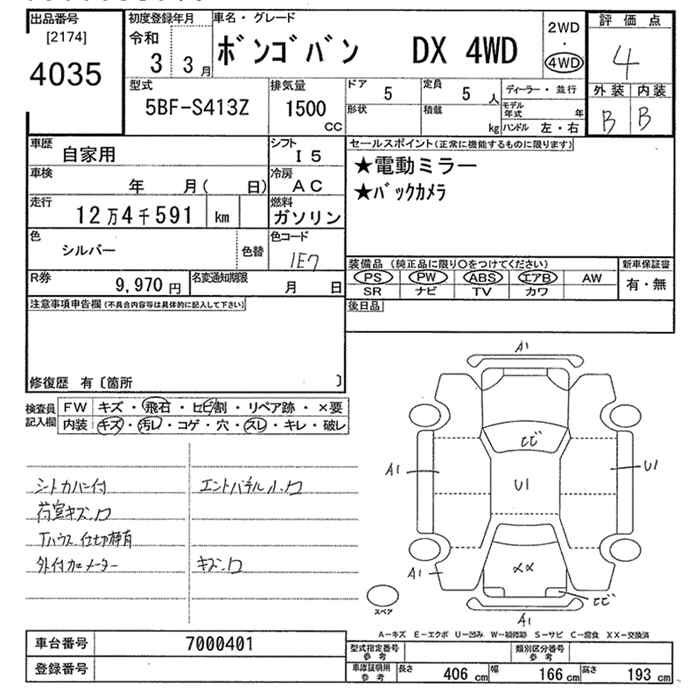 出品番号
[2174]
4035
初度登録年月
令和
3 3月
車名・グレード
ボンゴバン DX 4WD
2WD
・
4WD
評価点
4
外装 内装
B B
型式
5BF-S413Z
排気量
1500
CC
ドア 5
定員 5 人
形状
積載 kg
ディーラー・並行
モデル年式 年
ハンドル 左・右
車歴
自家用
シフト
I5
車検
年 月( 日)
冷房
AC
走行
12万4千591 km
燃料
ガソリン
色
シルバー
色替
色コード
1E7
R券
9,970円
名変通知期限
月 日
セールスポイント(正常に機能するものに限ります)
★電動ミラー
★バックカメラ
装備品 (純正品に限り〇をつけてください)
PS PW ABS エアB AW
SR ナビ TV カワ
新車保証書
有・無
後日品
注意事項申告欄(不具合内容等は具体的に記入して下さい)
修復歴 有〔箇所 〕
検査員記入欄
FW キズ・飛石・ヒビ割・リペア跡・×要
内装 キズ・汚レ・コゲ・穴・スレ・キレ・破レ
シートカバー付
荷室キズ、ワ
外付カメーター
キズ、ワ
A1
ヒビ
A1
U1
U1
A1
××
ヒビ
A1
スペア
A-キズ E-エクボ U-凹み W-補修跡 S-サビ C-腐食 XX-交換済
車台番号 7000401
登録番号
型式指定番号
参考
類別区分番号
参考
車庫証明用
参考
長さ 406 cm
幅 166 cm
高さ 193 cm